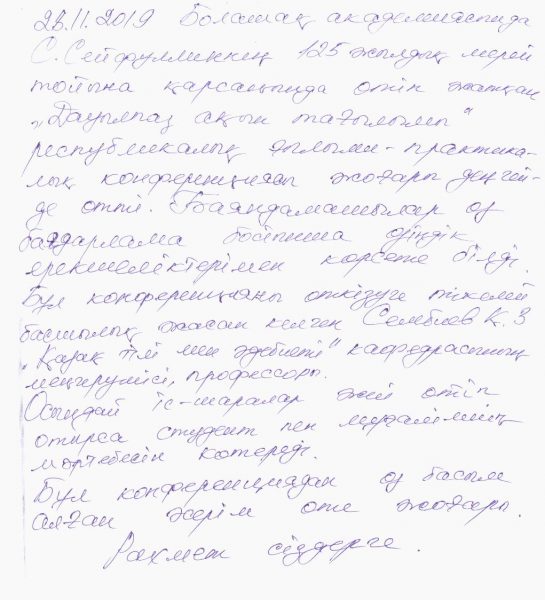 28.11.2019 Болашақ академиясында
С. Сейфуллиннің 125 жылдық мерей
тойына қарсаңында өтіп жатқан
„Дауылпаз ақын тағылымы"
республикалық ғылыми-практика-
лық конференциясы жоғары деңгей-
де өтті. Баяндамашылар өз
бағдарлама бойынша өзіндік
ерекшеліктерімен көрсете білді.
Бұл конференцияны өткізуге тікелей
басшылық жасап келген Сембиев Қ. З
„Қазақ тілі мен әдебиеті" кафедрасының
меңгерушісі, профессоры.
Осындай іс-шаралар жиі өтіп
отырса студент пен мұғалімнің
мәртебесін көтереді.
Бұл конференциядан өз басым
алған әсерім өте жоғары.
Рахмет сіздерге.